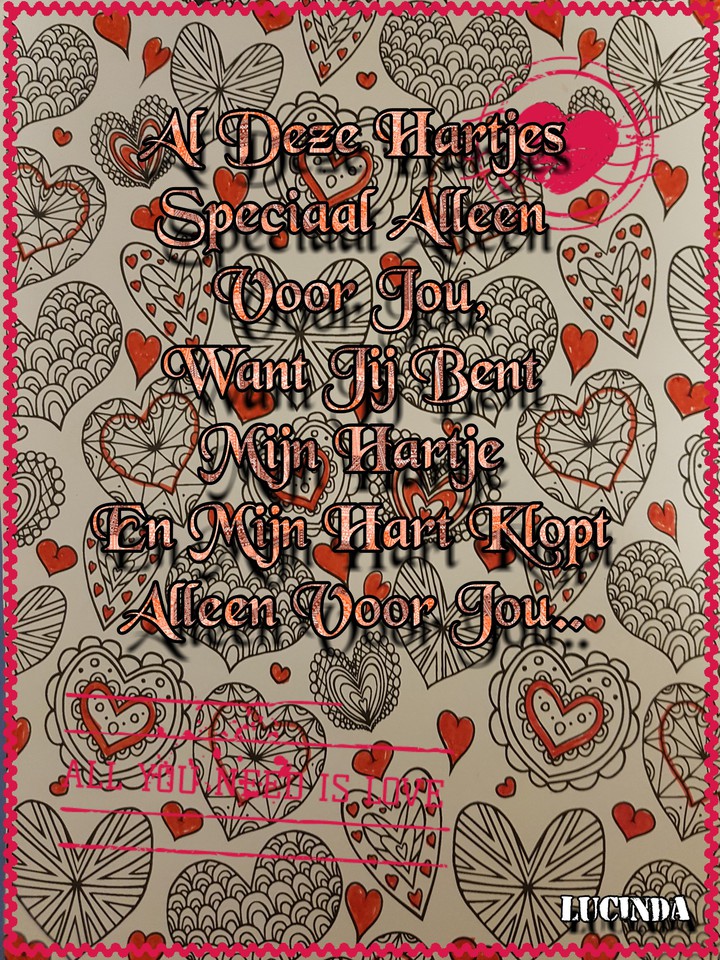 Al Deze Hartjes
Speciaal Alleen
Voor Jou,
Want Jij Bent
Mijn Hartje
En Mijn Hart Klopt
Alleen Voor Jou..
ALL YOU NEED IS LOVE
LUCINDA